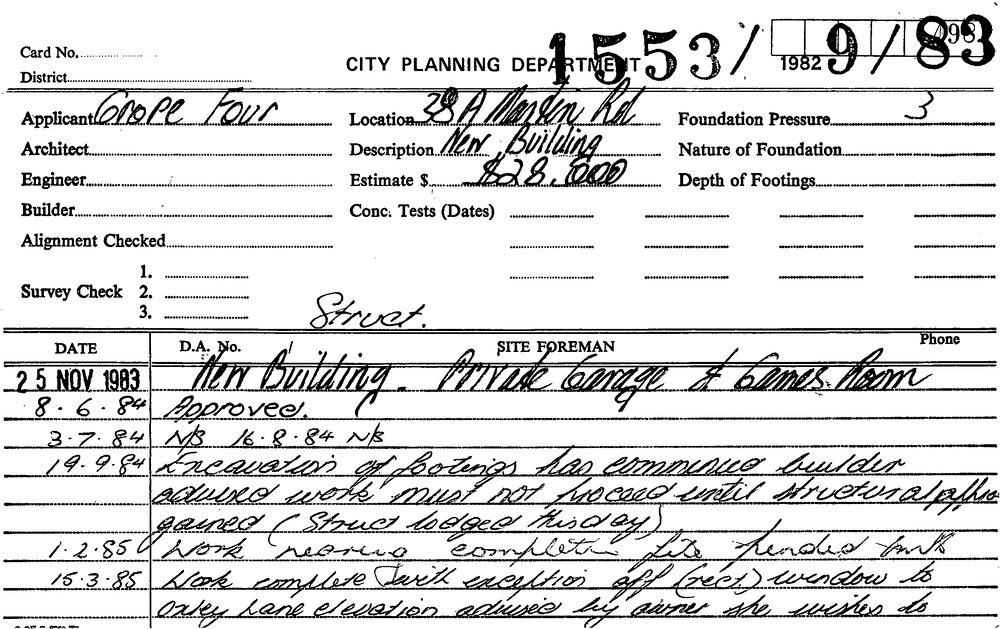 Card No.
District
CITY PLANNING DEPARTMENT
1553/9/83
1982
Applicant Grope Four
Location 38A Marlin Rd
Foundation Pressure 3
Architect
Description New Building
Nature of Foundation
Engineer
Estimate $ $28,000
Depth of Footings
Builder
Conc. Tests (Dates)
Alignment Checked
Survey Check
1.
2.
3.
Struct.
DATE
D.A. No.
SITE FOREMAN
Phone
25 NOV 1983 New Building. Private Garage & Games Room
8.6.84 Approved.
3.7.84 N/S 16.8.84 N/S
19.9.84 Excavation of footings has commenced builder
advised work must not proceed until structural
gained (Struct lodged this day)
1.2.85 Work nearing completion
15.3.85 Work complete with exception off (rect.) window to
Oxley Lane elevation advised by owner she wishes to